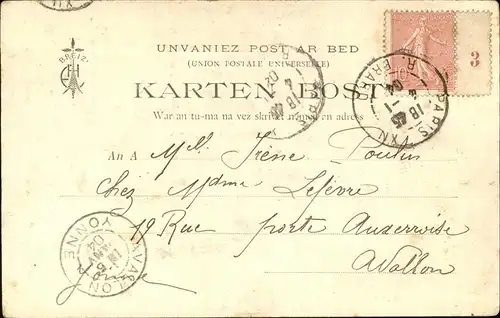 BREIZ
UNVANIEZ POST AR BED
(UNION POSTALE UNIVERSELLE)
3
KARTEN-BOST
War an tu-ma na vez skrivet nemed an adress
PARIS XXII
R. ERARD
18 45
4 - 1
04
An A Mlle Irène Poulin
chez Mdme Lefèvre
19 Rue porte Auxerroise
Avallon
Yonne
AVALLON
YONNE
04